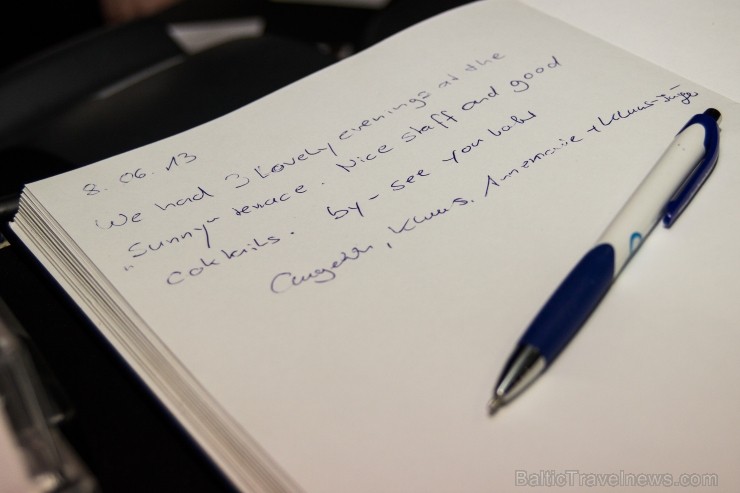 8. 06. 13
We had 3 lovely evenings at the
"Sunny" terrace. Nice staff and good
coktails. by - see you
Klaus, Annemarie + Klaus-
BalticTravelnews.com